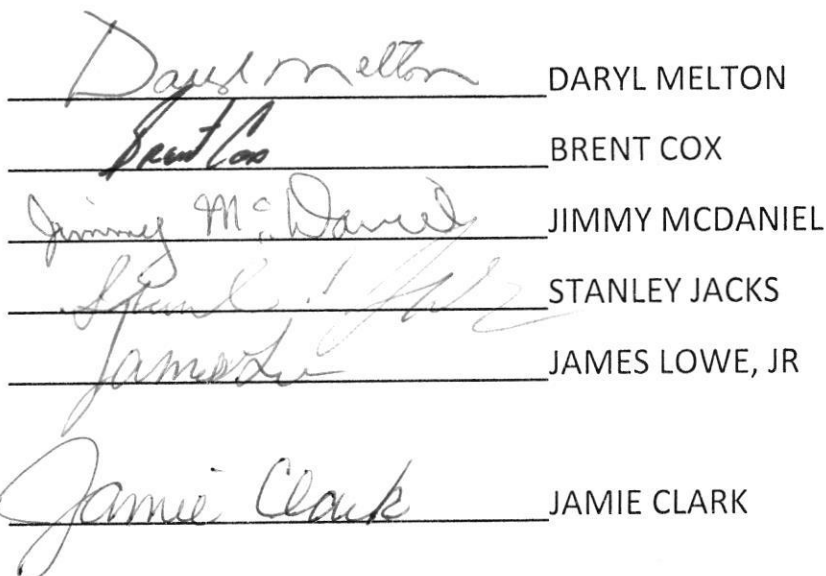 Daryl Melton DARYL MELTON
Brent Cox BRENT COX
Jimmy McDaniel JIMMY MCDANIEL
STANLEY JACKS
James JAMES LOWE, JR
Jamie Clark JAMIE CLARK